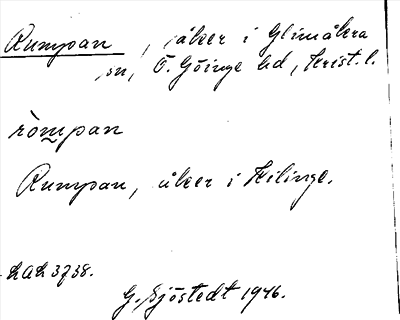 Rumpan, åker i Glimåkra
sn, Ö. Göinge hd, Krist. l.
ròmpan
Rumpan, åker i Kilinge.
LAL 3738.
G. Sjöstedt 1946.